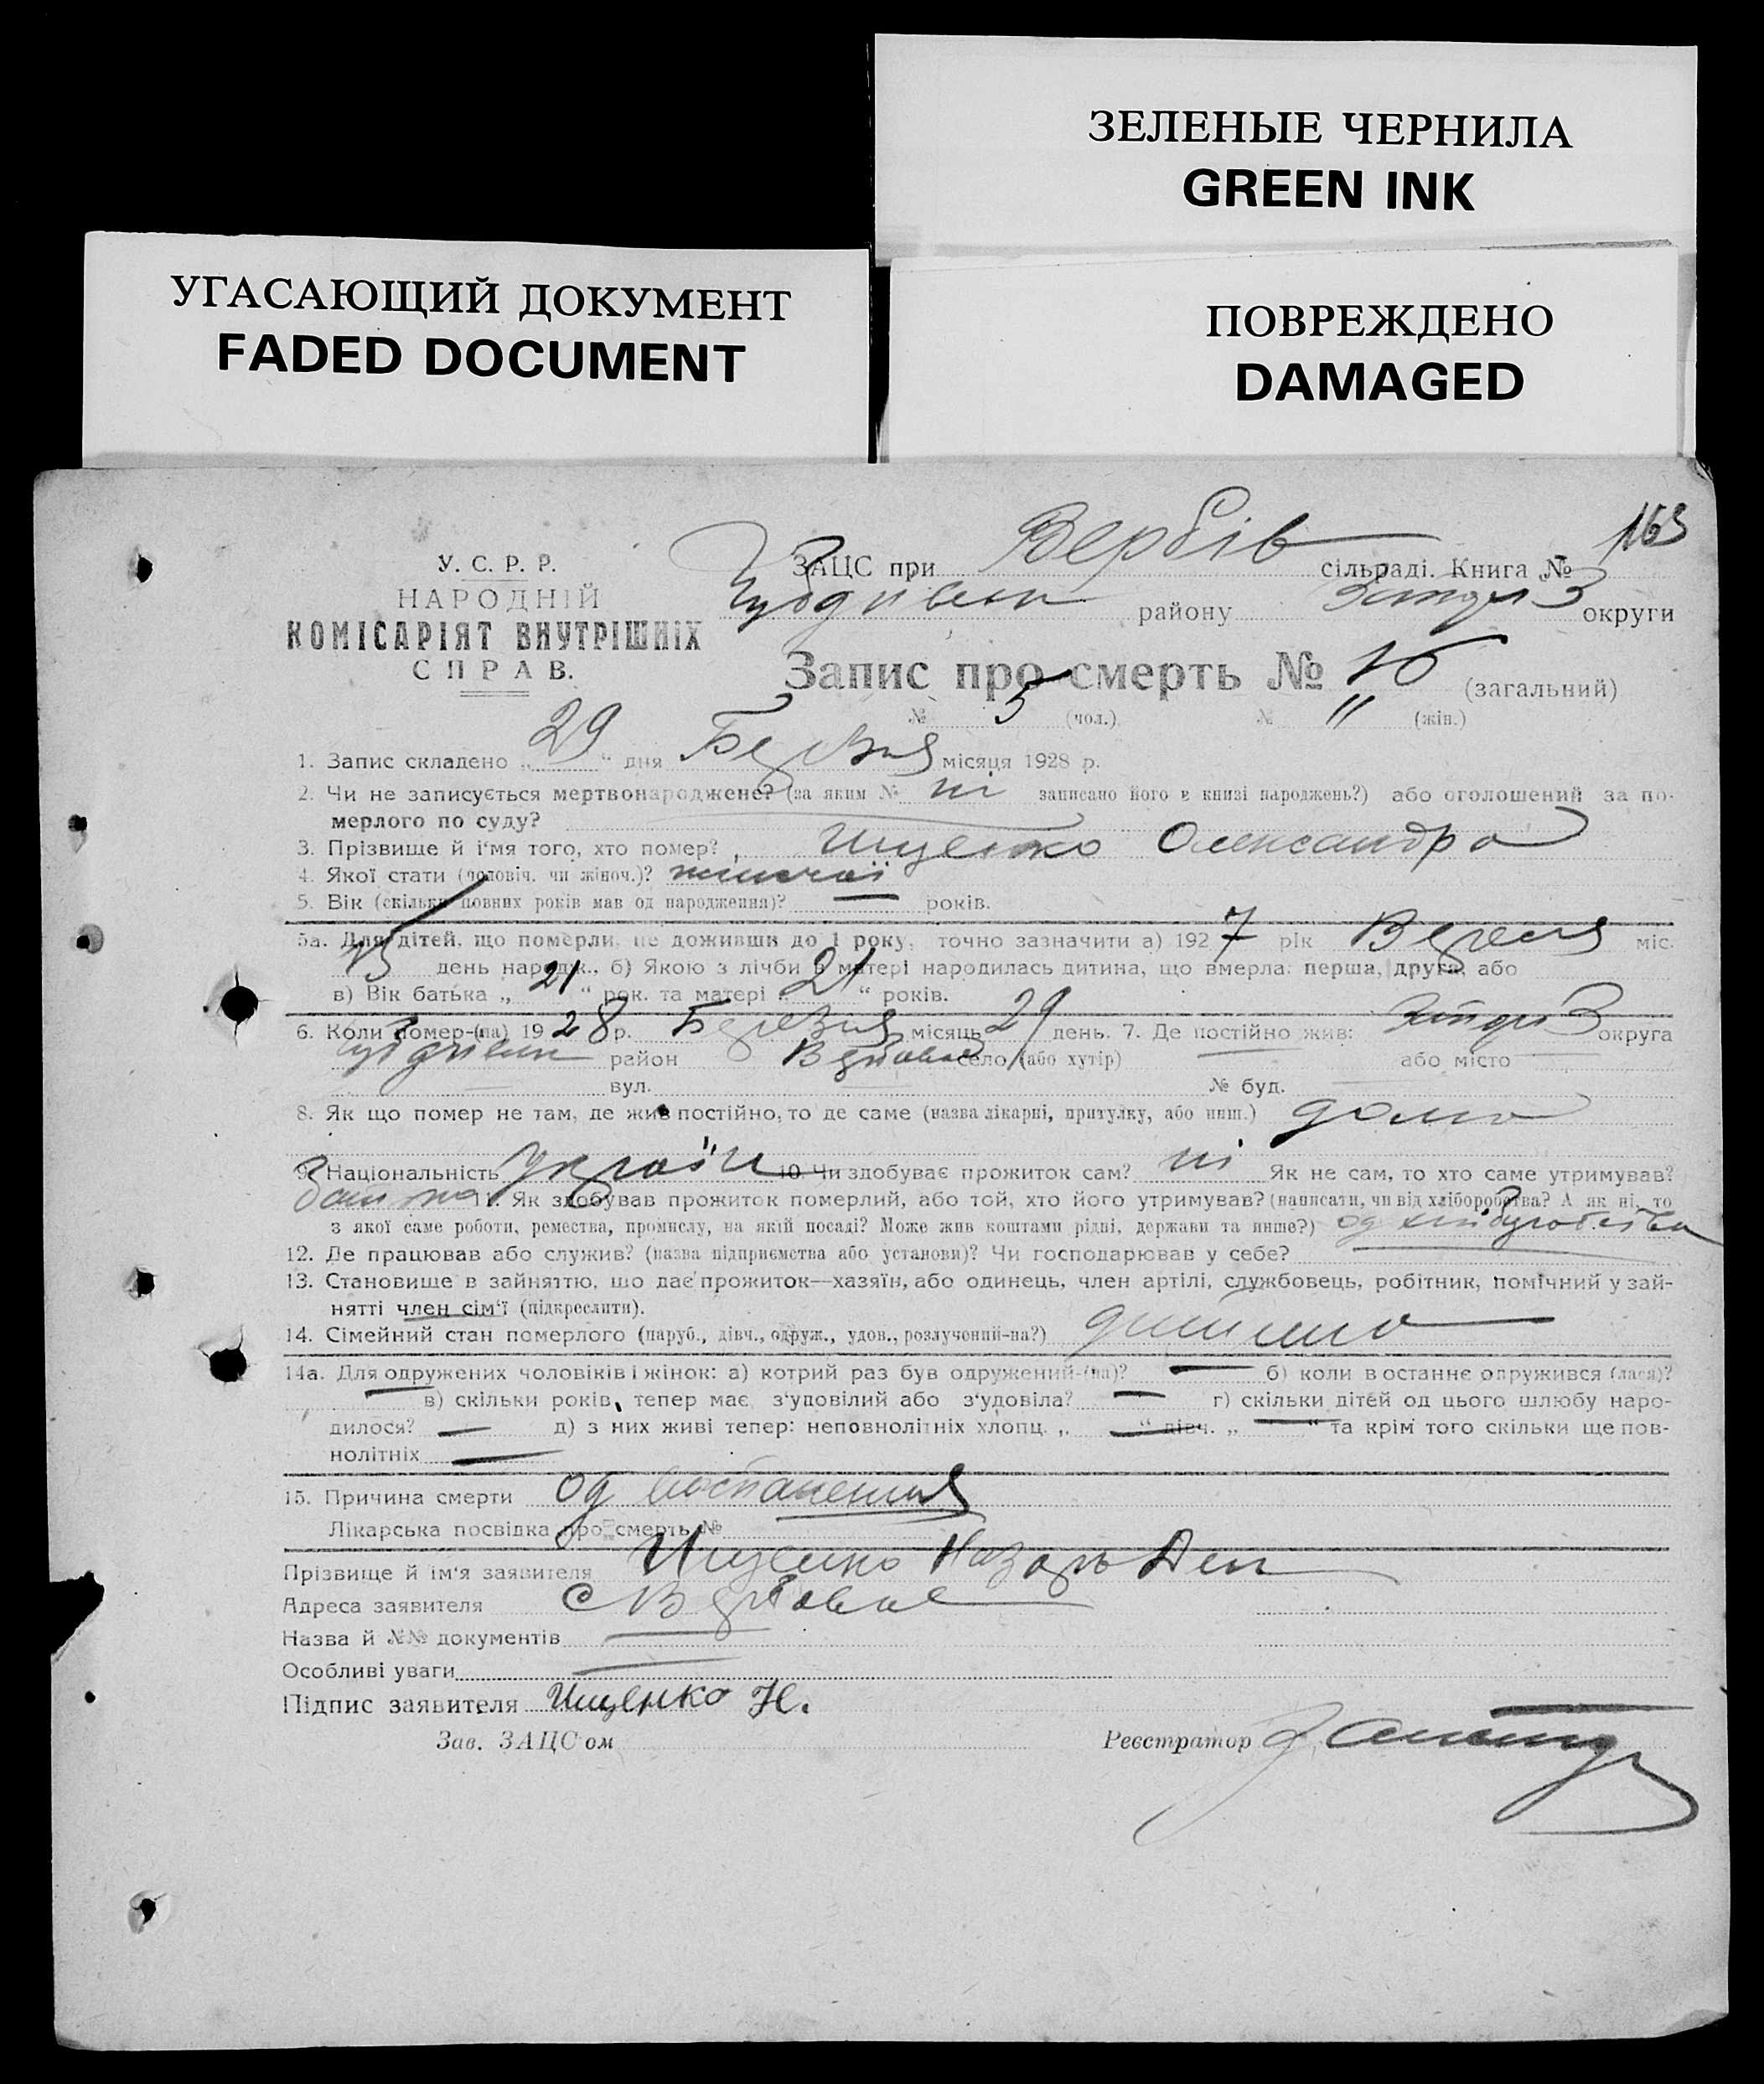 ЗЕЛЕНЫЕ ЧЕРНИЛА
GREEN INK
УГАСАЮЩИЙ ДОКУМЕНТ
FADED DOCUMENT
ПОВРЕЖДЕНО
DAMAGED
163
У. С. Р. Р.
НАРОДНІЙ
КОМІСАРІЯТ ВНУТРІШНІХ
СПРАВ.
ЗАЦС при Вербів сільраді. Книга №
району округи
Запис про смерть № (загальний)
№ 5 (чол.) № " (жін.)
1. Запис складено „ 29 “ дня Березня місяця 1928 р.
2. Чи не записується мертвонароджене? (за яким № ні записано його в книзі народжень?) або оголошений за по-
мерлого по суду?
3. Прізвище й і'мя того, хто помер? Ищенко Олександра
4. Якої стати (чоловіч. чи жіноч.)?
5. Вік (скільки повних років мав од народження)? — років.
5а. Для дітей, що померли, не доживши до 1 року, точно зазначити а) 1927 рік Вересня міс.
15 день народж., б) Якою з лічби в матері народилась дитина, що вмерла: перша, друга, або
в) Вік батька „ 21 “ рок. та матері „ 21 “ років.
6. Коли помер-(ла) 1928 р. Березня місяць 29 день. 7. Де постійно жив: округа
район село (або хутір) або місто
вул. № буд.
8. Як що помер не там, де жив постійно, то де саме (назва лікарні, притулку, або инш.) дома
9. Національність Україн 10. Чи здобуває прожиток сам? ні Як не сам, то хто саме утримував?
Батько 11. Як здобував прожиток померлий, або той, хто його утримував? (написати, чи від хліборобства? А як ні, то
з якої саме роботи, ремества, промислу, на якій посаді? Може жив коштами рідні, держави та инше?) од хліборобства
12. Де працював або служив? (назва підприємства або установи)? Чи господарював у себе?
13. Становище в зайняттю, що дає прожиток—хазяїн, або одинець, член артілі, службовець, робітник, помічний у зай-
нятті член сім'ї (підкреслити).
14. Сімейний стан померлого (паруб., дівч., одруж., удов., розлучений-на?) дитина
14а. Для одружених чоловіків і жінок: а) котрий раз був одружений-(на)? — б) коли в останнє одружився (лася)?
— в) скільки років, тепер має, з'удовілий або з'удовіла? — г) скільки дітей од цього шлюбу наро-
дилося? — д) з них живі тепер: неповнолітніх хлопц. „ — “ дівч. „ — “ та крім того скільки ще пов-
нолітніх —
15. Причина смерти од воспаления
Лікарська посвідка про смерть №
Прізвище й ім'я заявителя Ищенко Назар
Адреса заявителя с
Назва й №№ документів —
Особливі уваги —
Підпис заявителя Ищенко Н.
Зав. ЗАЦС'ом Реєстратор